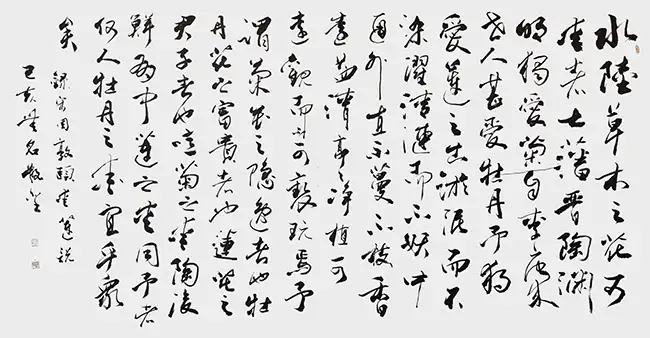 水陸草木之花可
愛者甚蕃晉陶淵
明獨愛菊自李唐來
世人甚愛牡丹予獨
愛蓮之出淤泥而不
染濯清漣而不妖中
通外直不蔓不枝香
遠益清亭亭淨植可
遠觀而不可褻玩焉予
謂菊花之隱逸者也牡
丹花之富貴者也蓮花之
君子者也噫菊之愛陶後
鮮有聞蓮之愛同予者
何人牡丹之愛宜乎眾
矣
錄宋周敦頤愛蓮說
己亥